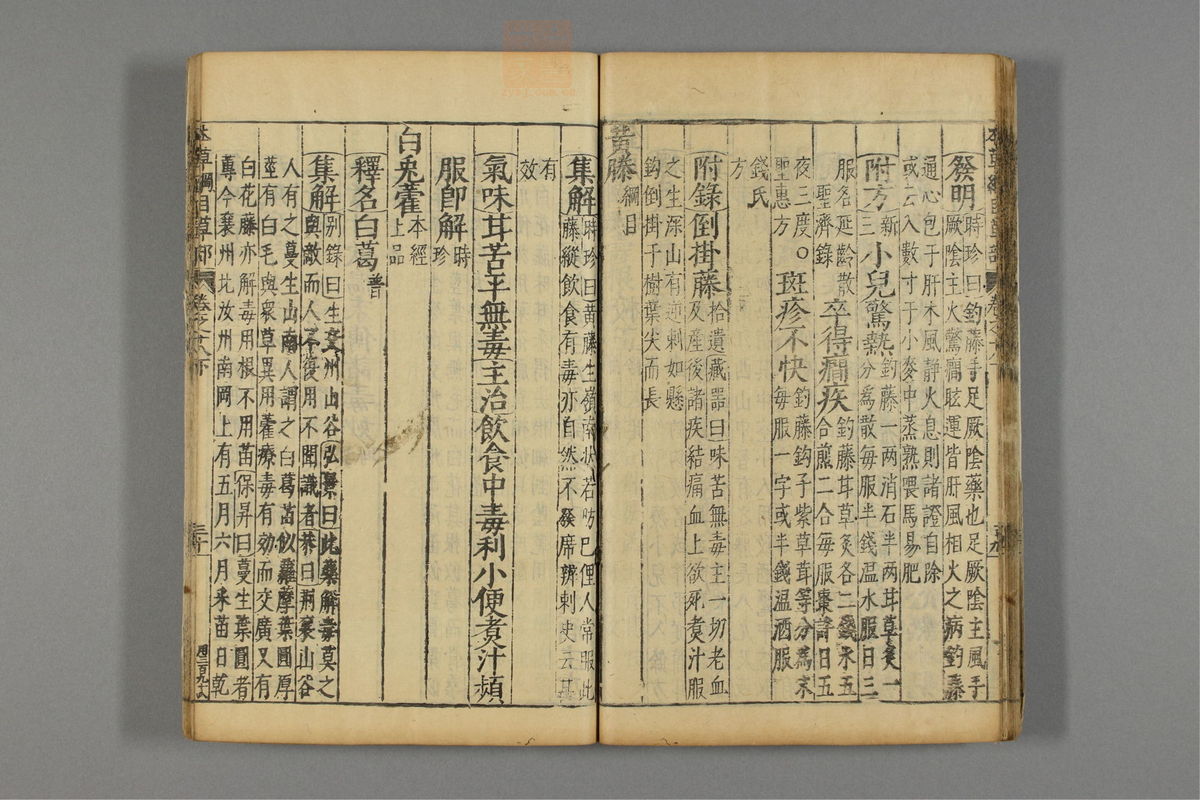 發明時珍曰鈎藤手足厥陰藥也足厥陰主風手
厥陰主火驚癎眩運皆肝風相火之病鈎藤
通心包于肝木風静火息則諸證自除
或云入數寸于小麥中蒸熟喂馬易肥
附方新三小兒驚熱鈎藤一兩消石半兩甘草炙一
分爲散每服半錢温水服日三
服名延齡散
聖濟錄卒得癎疾鈎藤甘草炙各二錢水五
合煎二合每服棗許日五
夜三度〇
聖惠方斑疹不快鈎藤鈎子紫草茸等分爲末
每服一字或半錢温酒服
錢氏
方
附錄倒掛藤拾遺藏器曰味苦無毒主一切老血
及產後諸疾結痛血上欲死煑汁服
之生深山有逆刺如懸
鈎倒掛于樹葉尖而長
黄藤綱目
集解時珍曰黄藤生嶺南狀若防巳俚人常服此
藤縱飲食有毒亦自然不發席辨刺史云甚
有
效
氣味甘苦平無毒主治飲食中毒利小便煑汁頻
服卽解時
珍
白兎藿本經
上品
釋名白葛普
集解别錄曰生交州山谷弘景曰此藥解毒莫之
與敵而人不復用不聞識者恭曰荆襄山谷
人有之蔓生山南人謂之白葛苗似蘿摩葉圓厚
莖有白毛與衆草異用藿療毒有効而交廣又有
白花藤亦解毒用根不用苗保昇曰蔓生葉圓者
蓴今襄州北汝州南岡上有五月六月采苗日乾
本草綱目草部
卷之十八下